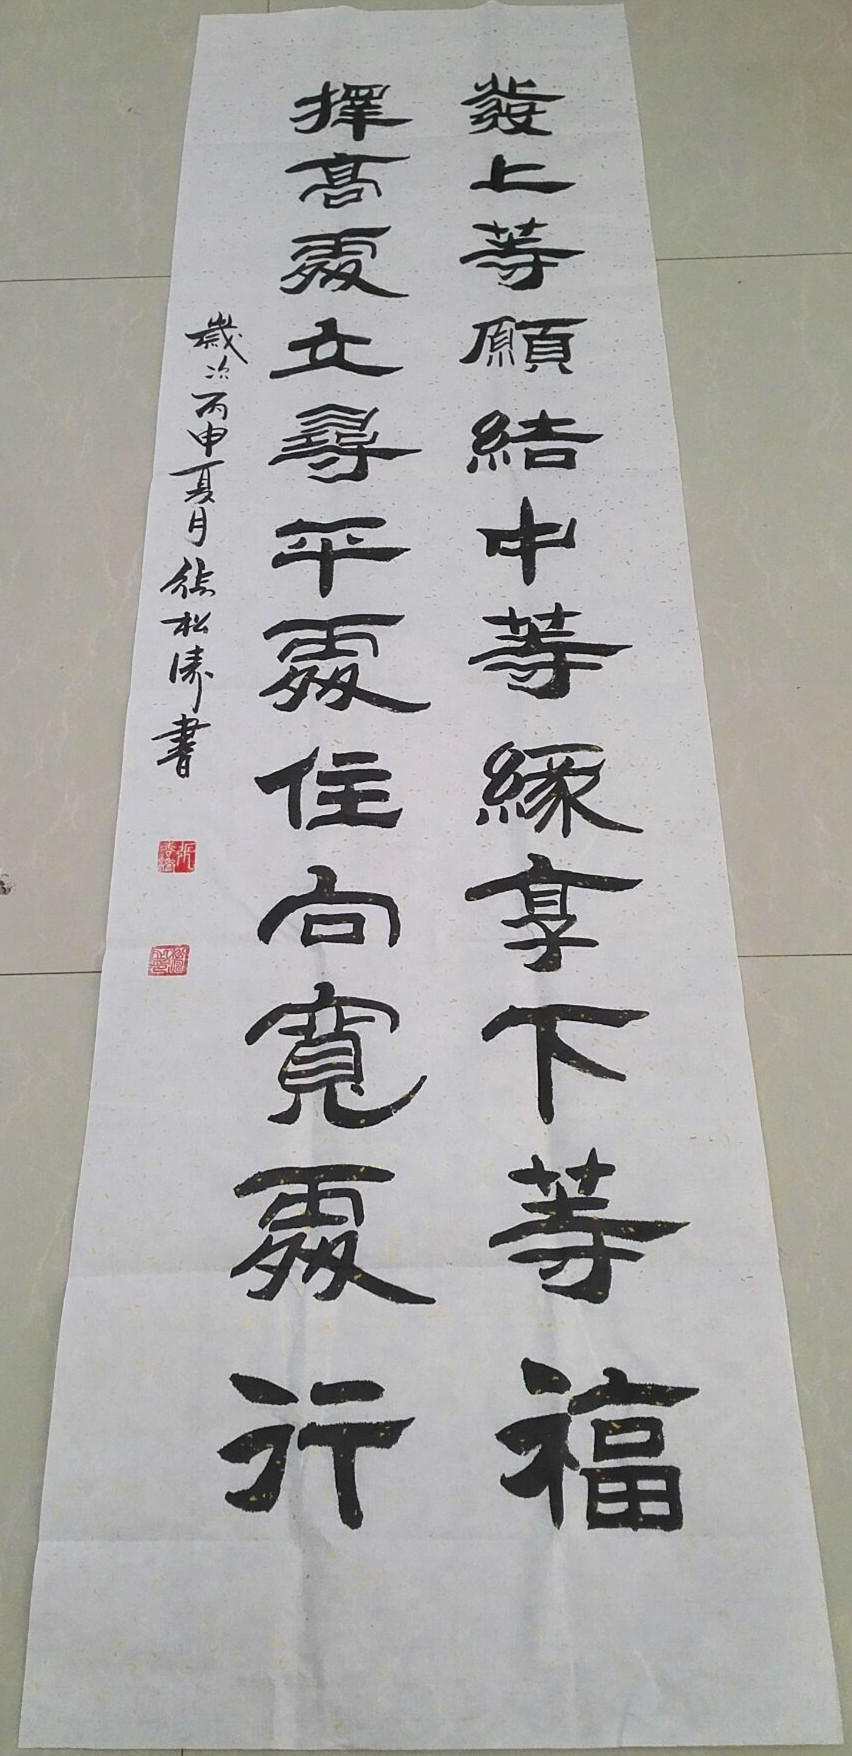 發上等願結中等緣享下等福
擇高處立尋平處住向寬處行
歲次丙申夏月張松濤書